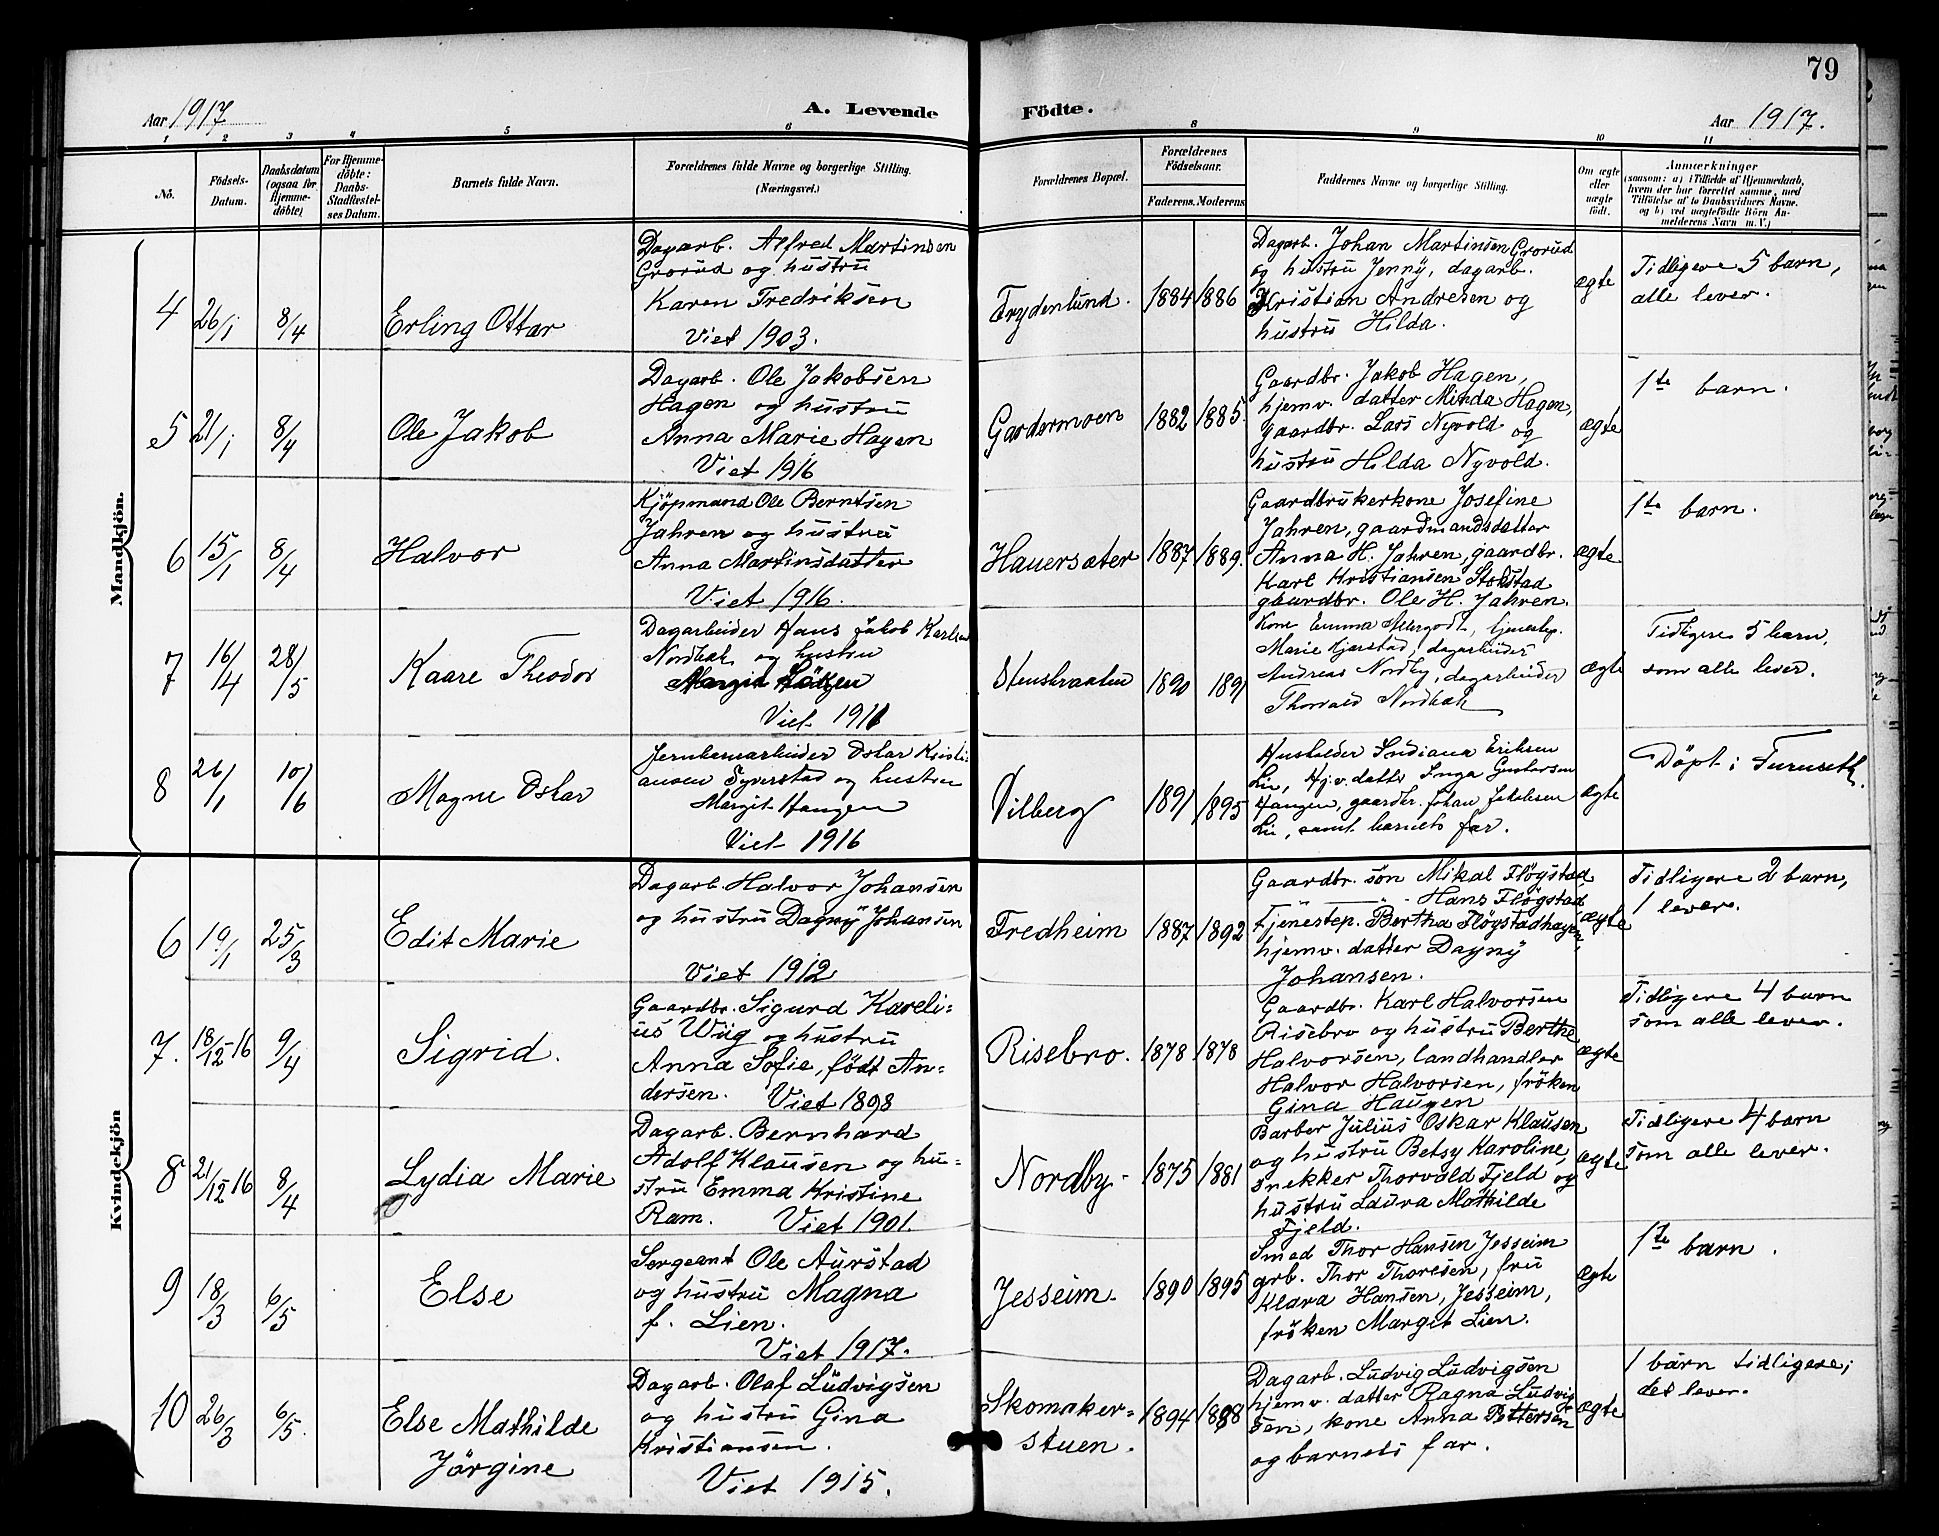 79
Aar 1917
A. Levende
Födte.
Aar 1917.
1 2 3 4 5 6 8 9 10 11
No.
Födsels-
Datum.
Daabsdatum
(ogsaa for
Hjemme-
döbte)
For Hjemme-
döbte:
Daabs-
Stadfæstel-
ses Datum.
Barnets fulde Navn.
Forældrenes fulde Navne og borgerlige Stilling.
(Næringsvei.)
Forældrenes Bopæl.
Forældrenes
Födselsaar.
Faderens. Moderens
Faddernes Navne og borgerlige Stilling.
Om ægte
eller
uægte
födt.
Anmærkninger
(saasom: a) i Tilfælde af Hjemmedaab,
hvem der har forrettet samme, med
Tilföielse af to Daabsvidners Navne.
og b) ved uægtefödte Börn An-
melderens Navn m. V.)
Mandkjön.
4
26/1
8/4
Erling Ottar
Dagarb. Alfred Martinsen
Grorud og hustru
Karen Fredriksen
Viet 1903.
Frydenlund.
1884
1886
Dagarb. Johan Martinsen Grorud
og hustru Jenny, dagarb.
Kristian Andresen og
hustru Hilda.
ægte
Tidligere 5 barn,
alle lever.
5
21/1
8/4
Ole Jakob
Dagarb. Ole Jakobsen
Hagen og hustru
Anna Marie Hagen
Viet 1916
Gardermoen
1882
1885.
Gaardbr. Jakob Hagen,
hjemv. datter Minda Hagen,
gaardbr. Lars Nyvold
og
hustru Hilda Nyvold.
ægte
1ste barn.
6
15/1
8/4
Halvor
Kjöpmand Ole Berntsen
Jahren og hustru
Anna Martinsdatter
Viet 1916.
Hauersæter
1887
1889.
Gaardbrukerkone Josefine
Jahren, gaardmandsdatter
Anna H. Jahren, gaardbr.
Karl Kristiansen Stokstad
gaardbr. Ole H. Jahren.
ægte
1ste barn.
7
16/4
28/5
Kaare Theodor
Dagarbeider Hans Jakob Karlsen
Nordbak og hustru
Margit
Viet 1911
Stenskraaten
1890
1891
Kone Emma, tjenestep.
Marie Kjærstad, dagarbeider
Andreas Nordby, dagarbeider
Thorvald Nordbak
ægte
Tidligere 5 barn,
som alle lever.
8
26/1
10/6
Magne Oskar
Jernbanearbeider Oskar Kristi-
ansen Syverstad og hustru
Margit Haugen
Viet 1916
Vilberg
1891
1895
Husholder Indiana Eriksen
Lie, Hj.v. datter Inga Gustavsen
Haugen, gaardbr. Johan Jakobsen
Lie, samt barnets far.
ægte
Döpt i Furuseth.
Kvindekjön
6
19/1
25/3
Edit Marie
Dagarb. Halvor Johansen
og hustru Dagny Johansen
Viet 1912
Fredheim
1887
1892
Gaardbr. sön Mikal Flögstad,
— " — Hans Flögstad
Tjenestep. Bertha Flögstadhagen,
hjemv. datter Dagny
Johansen.
ægte
Tidligere 2 barn,
1 lever.
7.
18/12-16
9/4
Sigrid.
Gaardbr. Sigurd Kareli-
us Wiig og hustru
Anna Sofie, född An-
dersen. Viet 1898
Risebro.
1878
1878
Gaardbr. Karl Halvorsen
Risebro og hustru Berthe
Halvorsen, landhandler
Halvor Halvorsen, fröken
Gina Haugen
ægte
Tidligere 4 barn
som alle lever.
8
21/12 16
8/4
Lydia Marie
Dagarb. Bernhard
Adolf Klausen og hu-
stru Emma Kristine
Ram. Viet 1901.
Nordby
1875
1881
Barber Julius Oskar Klausen
og hustru Betsy Karoline,
snekker Thorvald Fjeld og
hustru Laura Mathilde
Fjeld.
ægte
Tidligere 4 barn
som alle lever.
9
18/3
6/5
Else
Sergeant Ole Aurstad
og hustru Magna
f. Lien.
Viet 1917.
Jesseim.
1890
1895
Smed Thor Hansen Jesseim
arb. Thor Thoresen, fru
Klara Hansen, Jesseim,
fröken Margit Lien.
ægte
1ste barn.
10
26/3
6/5.
Else Mathilde
Jörgine
Dagarb. Olaf Ludvigsen
og hustru Gina
Kristiansen.
Viet 1915.
Skomaker-
stuen.
1894
1888
Dagarb. Ludvig Ludvigsen
hjemv. datter Ragna Ludvig-
sen, kone Anna Pettersen
og barnets far.
ægte
1 barn tidligere;
det lever.